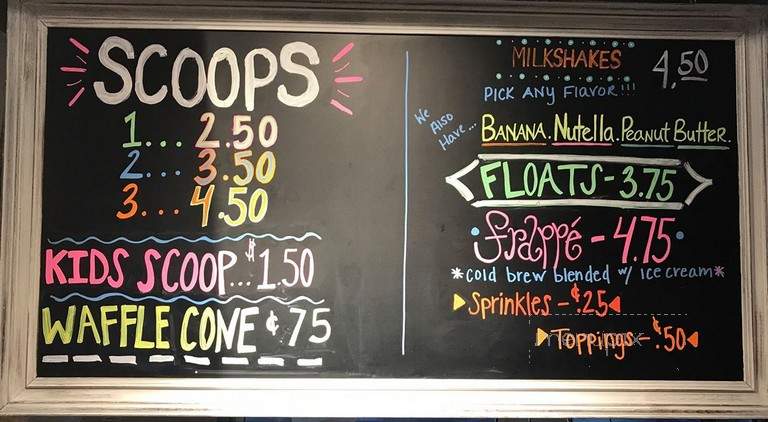 SCOOPS
1... 2.50
2... 3.50
3... 4.50
KIDS SCOOP...$1.50
WAFFLE CONE ¢75
MILKSHAKES 4.50
PICK ANY FLAVOR!!!
We Also Have... BANANA. Nutella. Peanut Butter.
FLOATS - 3.75
frappé - 4.75
*cold brew blended w/ ice cream*
Sprinkles - ¢.25
Toppings - ¢.50